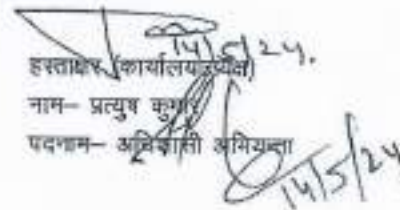 14/5/24.
हस्ताक्षर (कार्यालयाध्यक्ष)
नाम– प्रत्युष कुमार
पदनाम– अधिशासी अभियन्ता
14/5/24